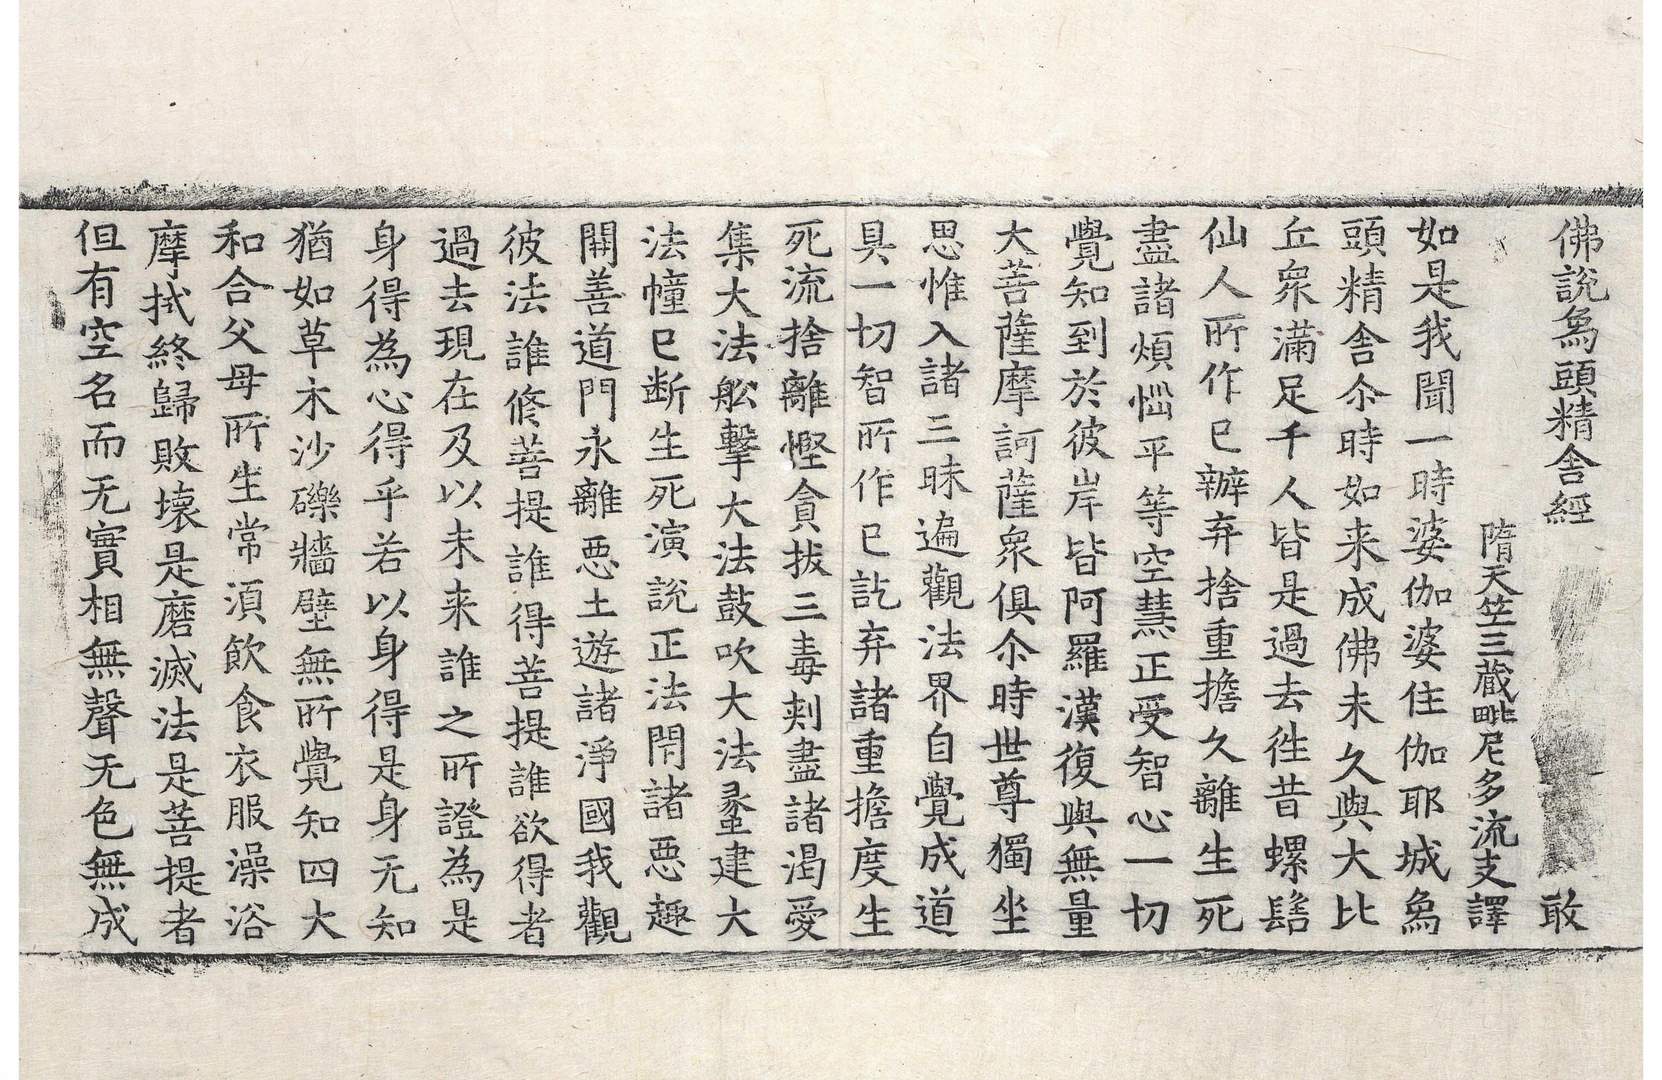 佛說象頭精舍經 敢
隋天竺三藏毗尼多流支譯
如是我聞一時婆伽婆住伽耶城象
頭精舍尒時如来成佛未久與大比
丘衆滿足千人皆是過去徃昔螺髻
仙人所作已辦弃捨重擔久離生死
盡諸煩惱平等空慧正受智心一切
覺知到於彼岸皆阿羅漢復與無量
大菩薩摩訶薩衆俱尒時世尊獨坐
思惟入諸三昧遍觀法界自覺成道
具一切智所作已訖弃諸重擔度生
死流捨離慳貪拔三毒刾盡諸渴愛
集大法舩擊大法鼓吹大法䗍建大
法幢已断生死演說正法閇諸惡趣
開善道門永離惡土遊諸淨國我觀
彼法誰修菩提誰得菩提誰欲得者
過去現在及以未来誰之所證為是
身得為心得乎若以身得是身无知
猶如草木沙礫牆壁無所覺知四大
和合父母所生常湏飲食衣服澡浴
摩拭終歸敗壞是磨滅法是菩提者
但有空名而无實相無聲无色無成